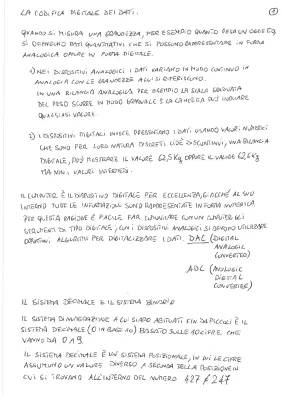 1
LA CODIFICA DIGITALE DEI DATI.
QUANDO SI MISURA UNA GRANDEZZA, PER ESEMPIO QUANTO PESA UN OGGETTO,
SI OTTENGONO DATI QUANTITATIVI CHE SI POSSONO RAPPRESENTARE IN FORMA
ANALOGICA OPPURE IN FORMA DIGITALE.
1) NEI DISPOSITIVI ANALOGICI I DATI VARIANO IN MODO CONTINUO IN
ANALOGIA CON LE GRANDEZZE A CUI SI RIFERISCONO.
IN UNA BILANCIA ANALOGICA PER ESEMPIO LA SCALA GRADUATA
DEL PESO SCORRE IN MODO GRADUALE E LA LANCETTA PUÒ INDICARE
QUALSIASI VALORE.
2) I DISPOSITIVI DIGITALI INVECE PRESENTANO I DATI USANDO VALORI NUMERICI
CHE SONO PER LORO NATURA DISCRETI CIOÈ DISCONTINUI, UNA BILANCIA
DIGITALE, PUÒ MOSTRARE IL VALORE 62,5 Kg OPPURE IL VALORE 62,6 Kg
MA NON I VALORI INTERMEDI.
IL COMPUTER È IL DISPOSITIVO DIGITALE PER ECCELLENZA, GIACCHÉ AL SUO
INTERNO TUTTE LE INFORMAZIONI SONO RAPPRESENTATE IN FORMA NUMERICA
PER QUESTA RAGIONE È FACILE FAR COMUNICARE COMPUTER CON GLI
STRUMENTI DI TIPO DIGITALE, CON I DISPOSITIVI ANALOGICI SI DEVONO UTILIZZARE
ALGORITMI PER DIGITALIZZARE I DATI. DAC (DIGITAL
ANALOGIC
CONVERTER)
ADC (ANALOGIC
DIGITAL
CONVERTER)
IL SISTEMA DECIMALE E IL SISTEMA BINARIO
IL SISTEMA DI NUMERAZIONE A CUI SIAMO ABITUATI FIN DA PICCOLI È IL
SISTEMA DECIMALE (O IN BASE 10) BASATO SULLE 10 CIFRE CHE
VANNO DA 0 A 9.
IL SISTEMA DECIMALE È UN SISTEMA POSIZIONALE, IN CUI LE CIFRE
ASSUMONO UN VALORE DIVERSO A SECONDA DELLA POSIZIONE IN
CUI SI TROVANO ALL'INTERNO DEL NUMERO 427 ≠ 247